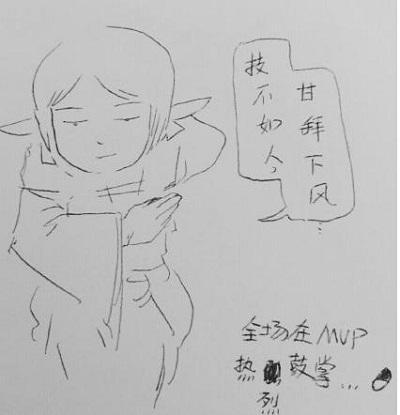 技不如人，
甘拜下风…
全场在MVP
热烈鼓掌...。